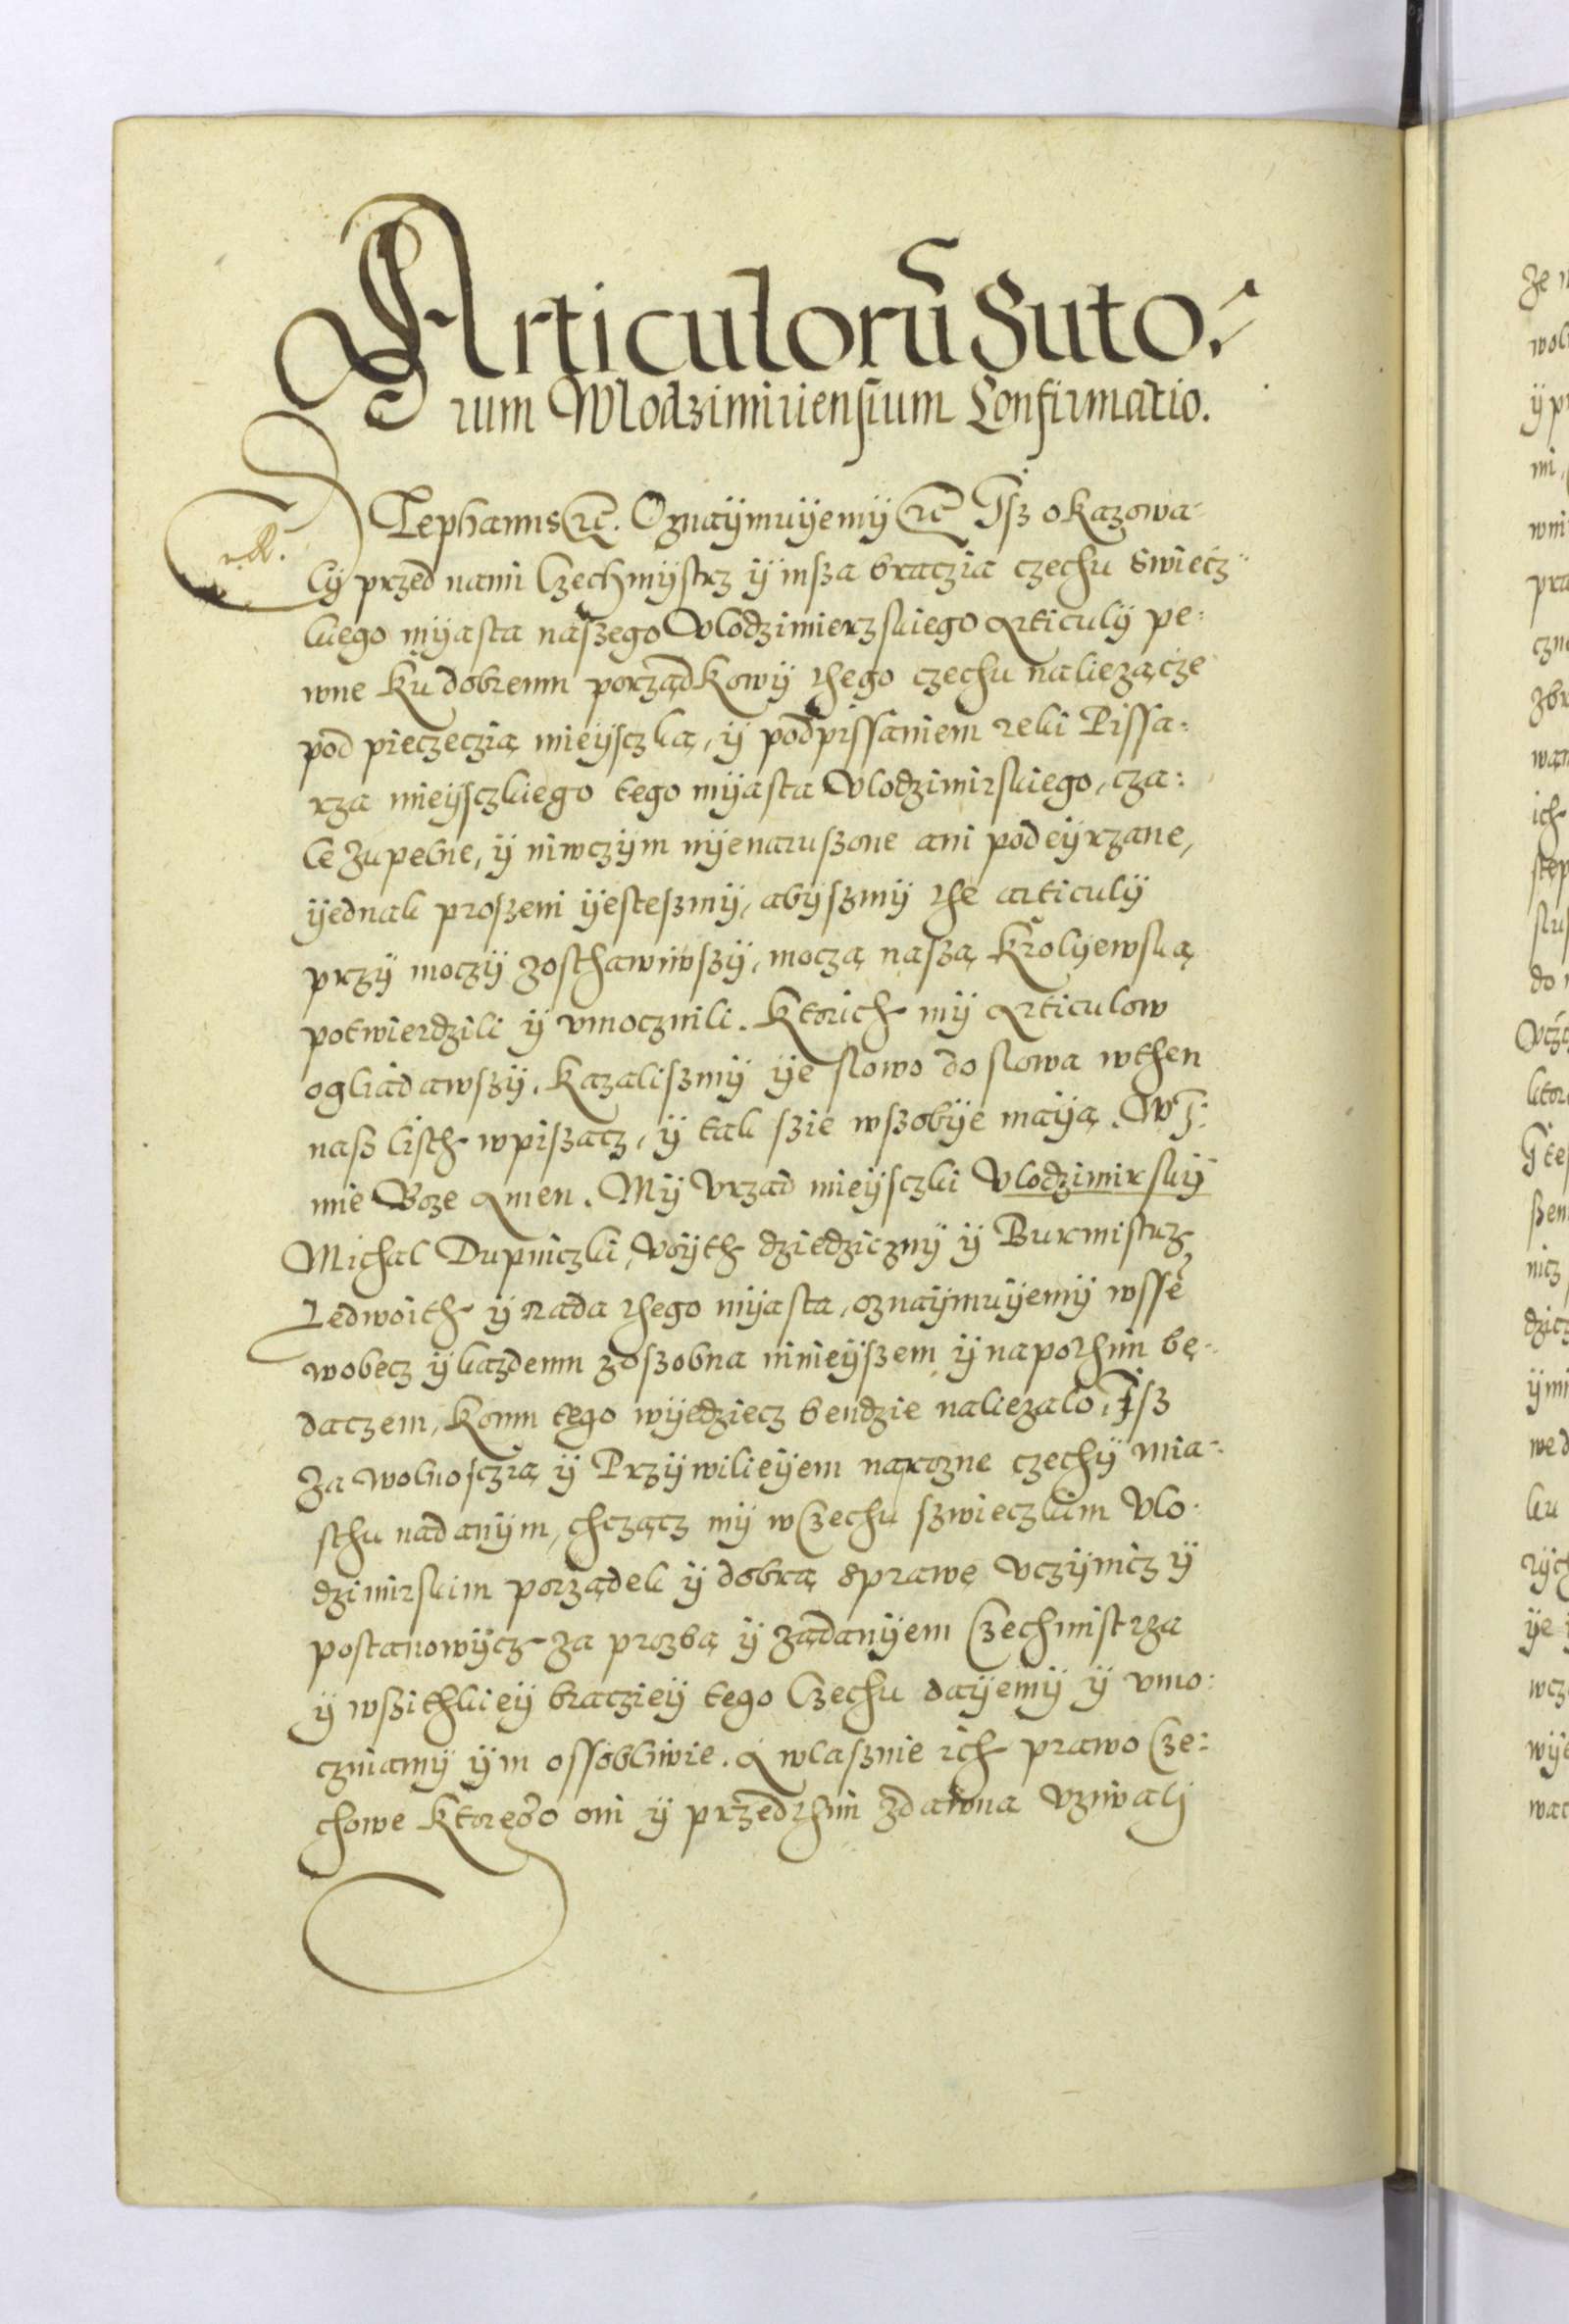 Articulorū Suto:
rum Wlodzimiriensium Confirmatio.
Stephanus etc. Oznaÿmuÿemÿ etc Isz okazowa-
lÿ przed nami Czechmÿstrz ÿ insza braczia czechu swiecz-
kiego mÿasta naszego Wlodzimierzskiego Articulÿ pe:
wne ku dobremu porządkowÿ thego czechu naliezącze
pod pieczeczią mieÿsczką, ÿ podpissaniem reki Pissa:
rza mieÿsczkiego tego mÿasta Wlodzimirskiego, cza:
le zupelne, ÿ niwczÿm nÿenaruszone ani podeÿrzane,
ÿednak proszeni ÿesteszmÿ, abÿszmÿ the articulÿ
przÿ moczÿ zosthawiwszÿ, moczą naszą Krolÿewską
potwierdzili ÿ vmocznili. Ktorich mÿ Articulow
ogliądawszÿ. Kazaliszmÿ ÿe slowo do slowa wthen
nasz listh wpiszacz, ÿ tak szie wszobÿe maÿą. W I:
mie Boze Amen. Mÿ Vrzad mieÿsczki Vlodzimirskÿ
Michal Dupniczki, Voÿth dziedzicznÿ ÿ Burmistrz
Ledwoith ÿ Rada thego mÿasta, oznaÿmuÿemÿ wsse
wobecz ÿ kazdemu zoszobna ninieÿszem ÿ napothim bę-
daczem, Komu tego wÿedziecz bendzie naliezalo, Isz
za wolnosczią ÿ Przÿwilieÿem narozne czechÿ mia-
sthu nadanÿm, chcząc mÿ w Czechu szwieczkim Vlo-
dzimirskim porządek ÿ dobrą sprawę vczÿnicz ÿ
postanowÿcz za prozbą ÿ ządanÿem Czechmistrza
ÿ wszithkieÿ bracziеÿ tego Czechu daÿemÿ ÿ vmo:
czniamÿ ÿm ossobliwie. A wlasznie ich prawo Cze:
chowe Ktorego oni ÿ przedthim zdawna vziwali